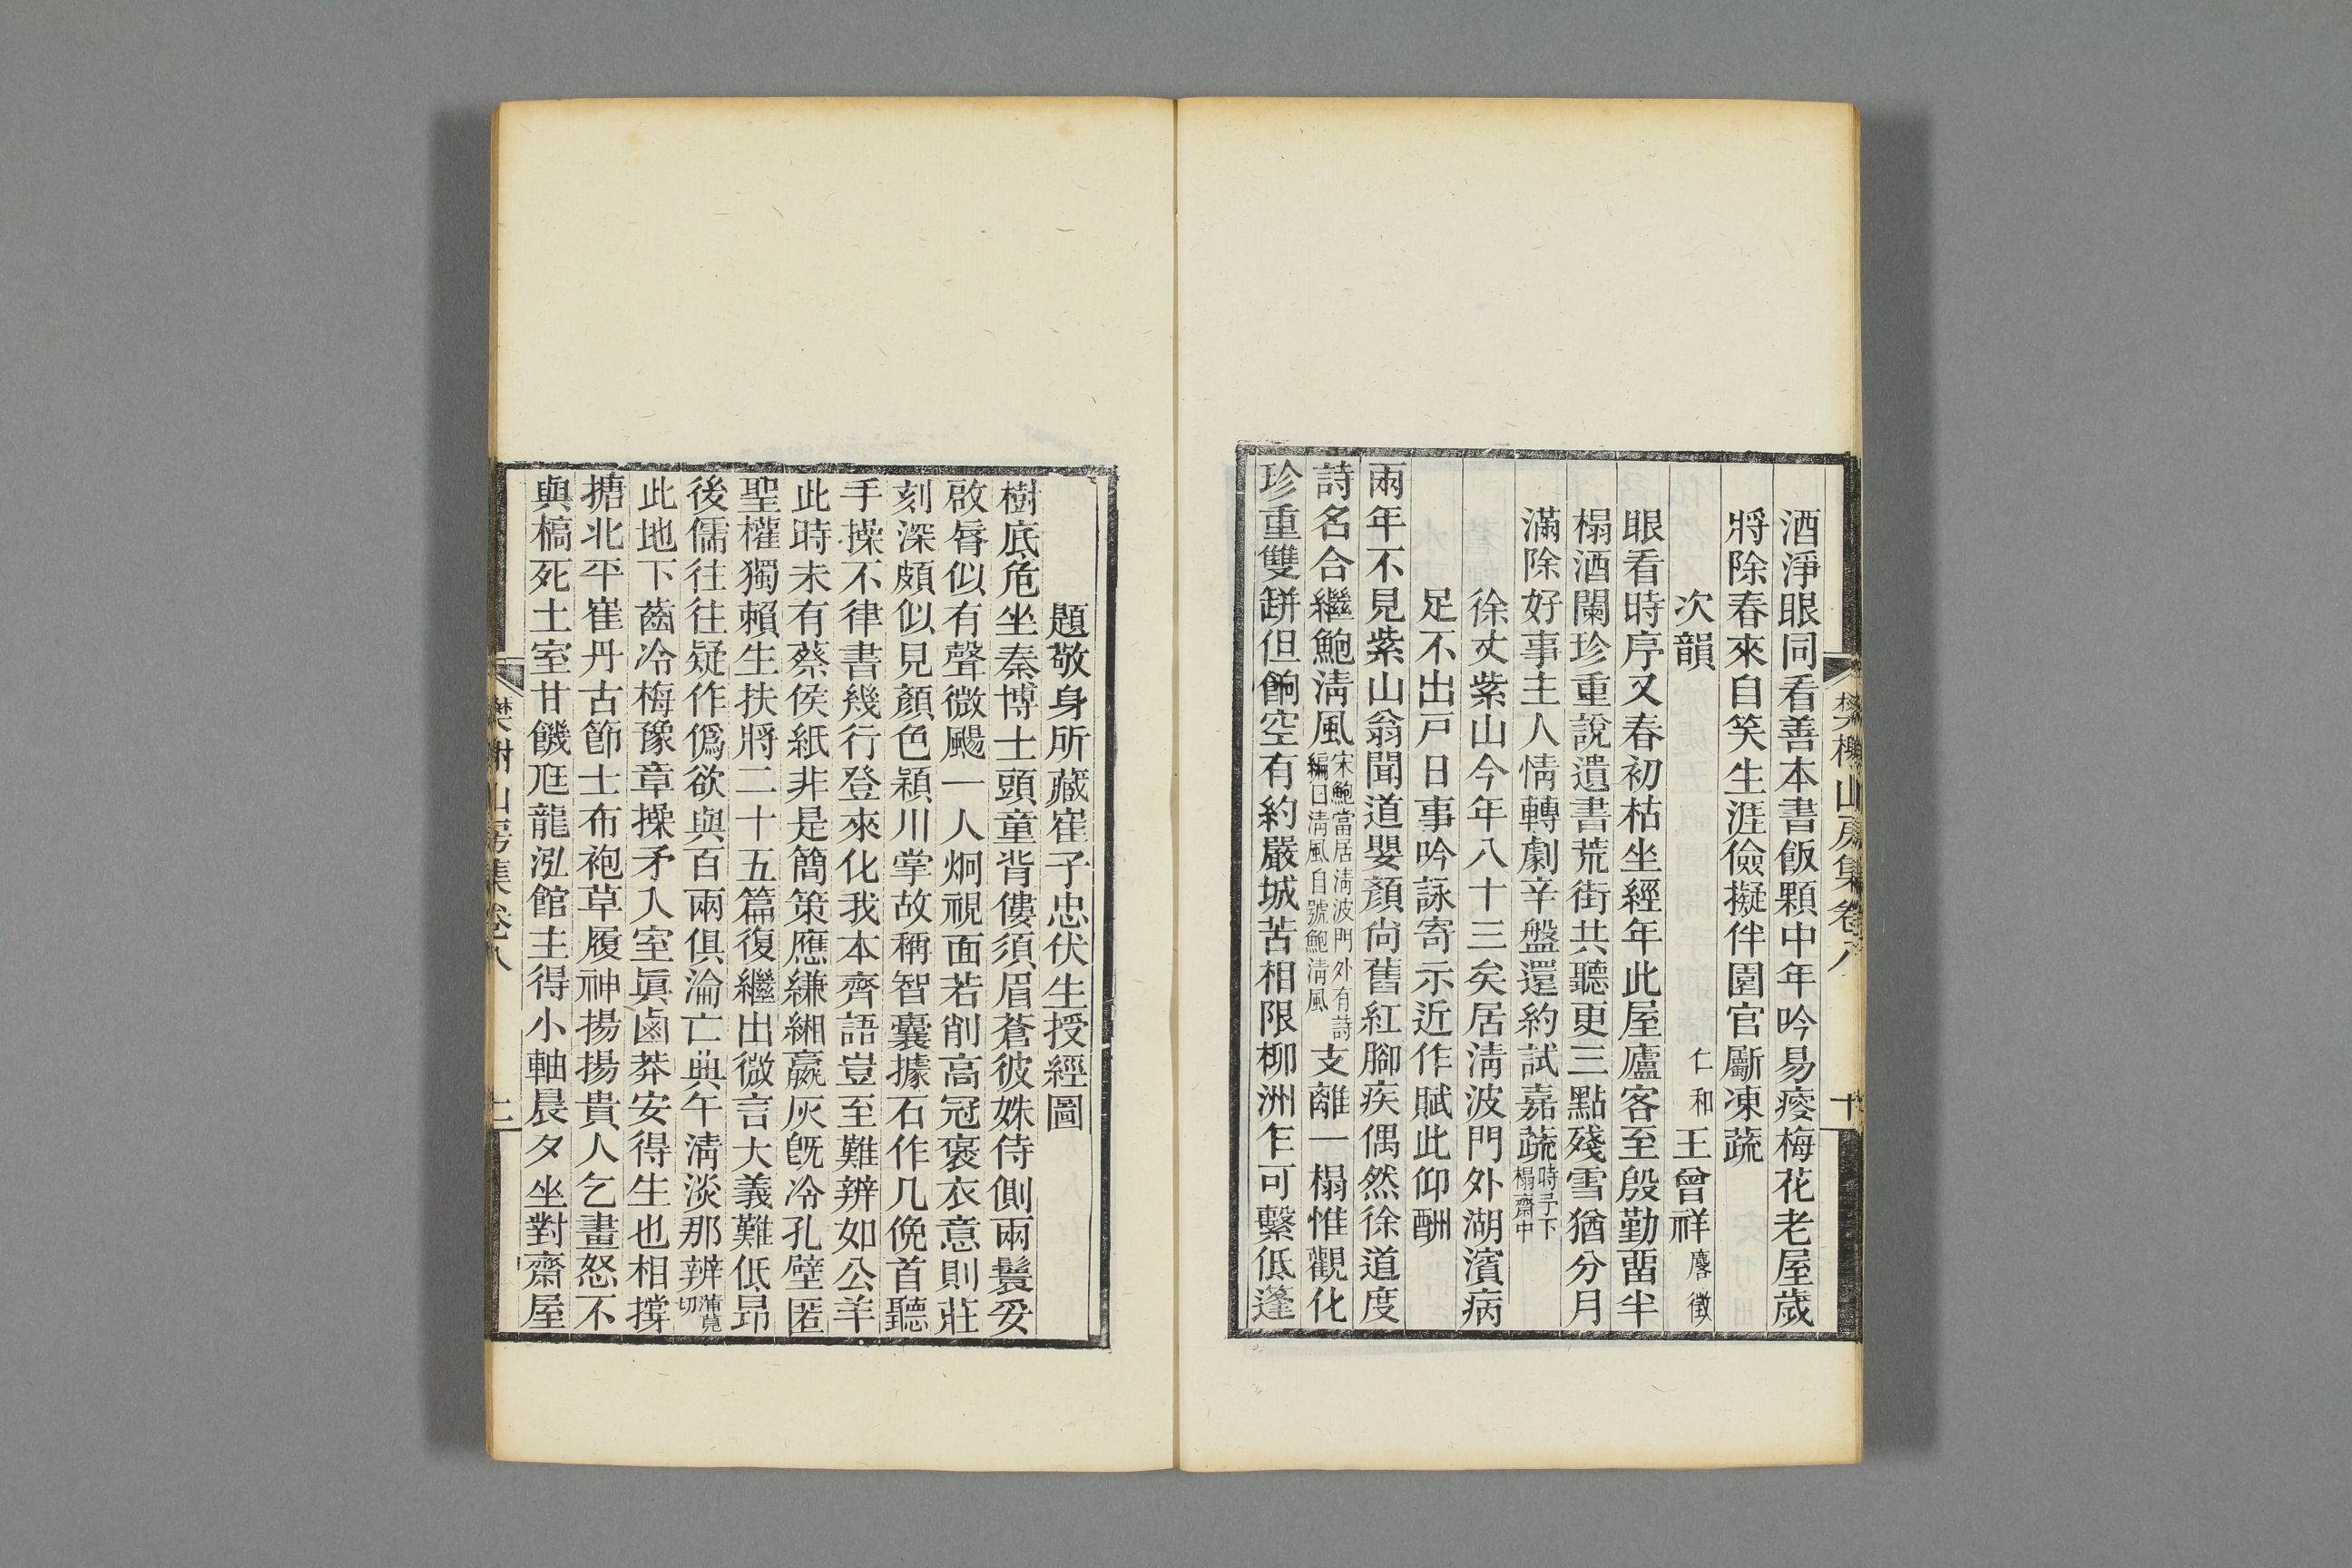 樊榭山房集卷八
十
酒淨眼同看善本書飯顆中年吟易瘦梅花老屋歲
將除春來自笑生涯儉擬伴園官斸凍蔬
次韻 仁和王曾祥麐徵
眼看時序又春初枯坐經年此屋廬客至殷勤畱半
榻酒闌珍重說遺書荒街共聽更三點殘雪猶分月
滿除好事主人情轉劇辛盤還約試嘉蔬時予下榻齋中
徐丈紫山今年八十三矣居淸波門外湖濱病
足不出戸日事吟詠寄示近作賦此仰酬
兩年不見紫山翁聞道嬰顏尙舊紅腳疾偶然徐道度
詩名合繼鮑淸風宋鮑當居淸波門外有詩編曰淸風自號鮑淸風支離一榻惟觀化
珍重雙缾但餉空有約嚴城苦相限柳洲乍可繫低篷
題敬身所藏崔子忠伏生授經圖
樹底危坐秦博士頭童背僂須眉蒼彼姝侍側兩鬟妥
啟脣似有聲微颺一人炯視面若削高冠褒衣意則莊
刻深頗似見顏色潁川掌故稱智囊據石作几俛首聽
手操不律書幾行登來化我本齊語豈至難辨如公羊
此時未有蔡侯紙非是簡策應縑緗嬴灰旣冷孔壁匿
聖權獨賴生扶將二十五篇復繼出微言大義難低昂
後儒往往疑作僞欲與百兩俱淪亡典午淸淡那辨蒲莧切
此地下齒冷梅豫章操矛入室眞鹵莽安得生也相撐
搪北平崔丹古節士布袍草履神揚揚貴人乞畫怒不
與槁死土室甘饑尫龍泓館主得小軸晨夕坐對齋屋
樊榭山房集卷八